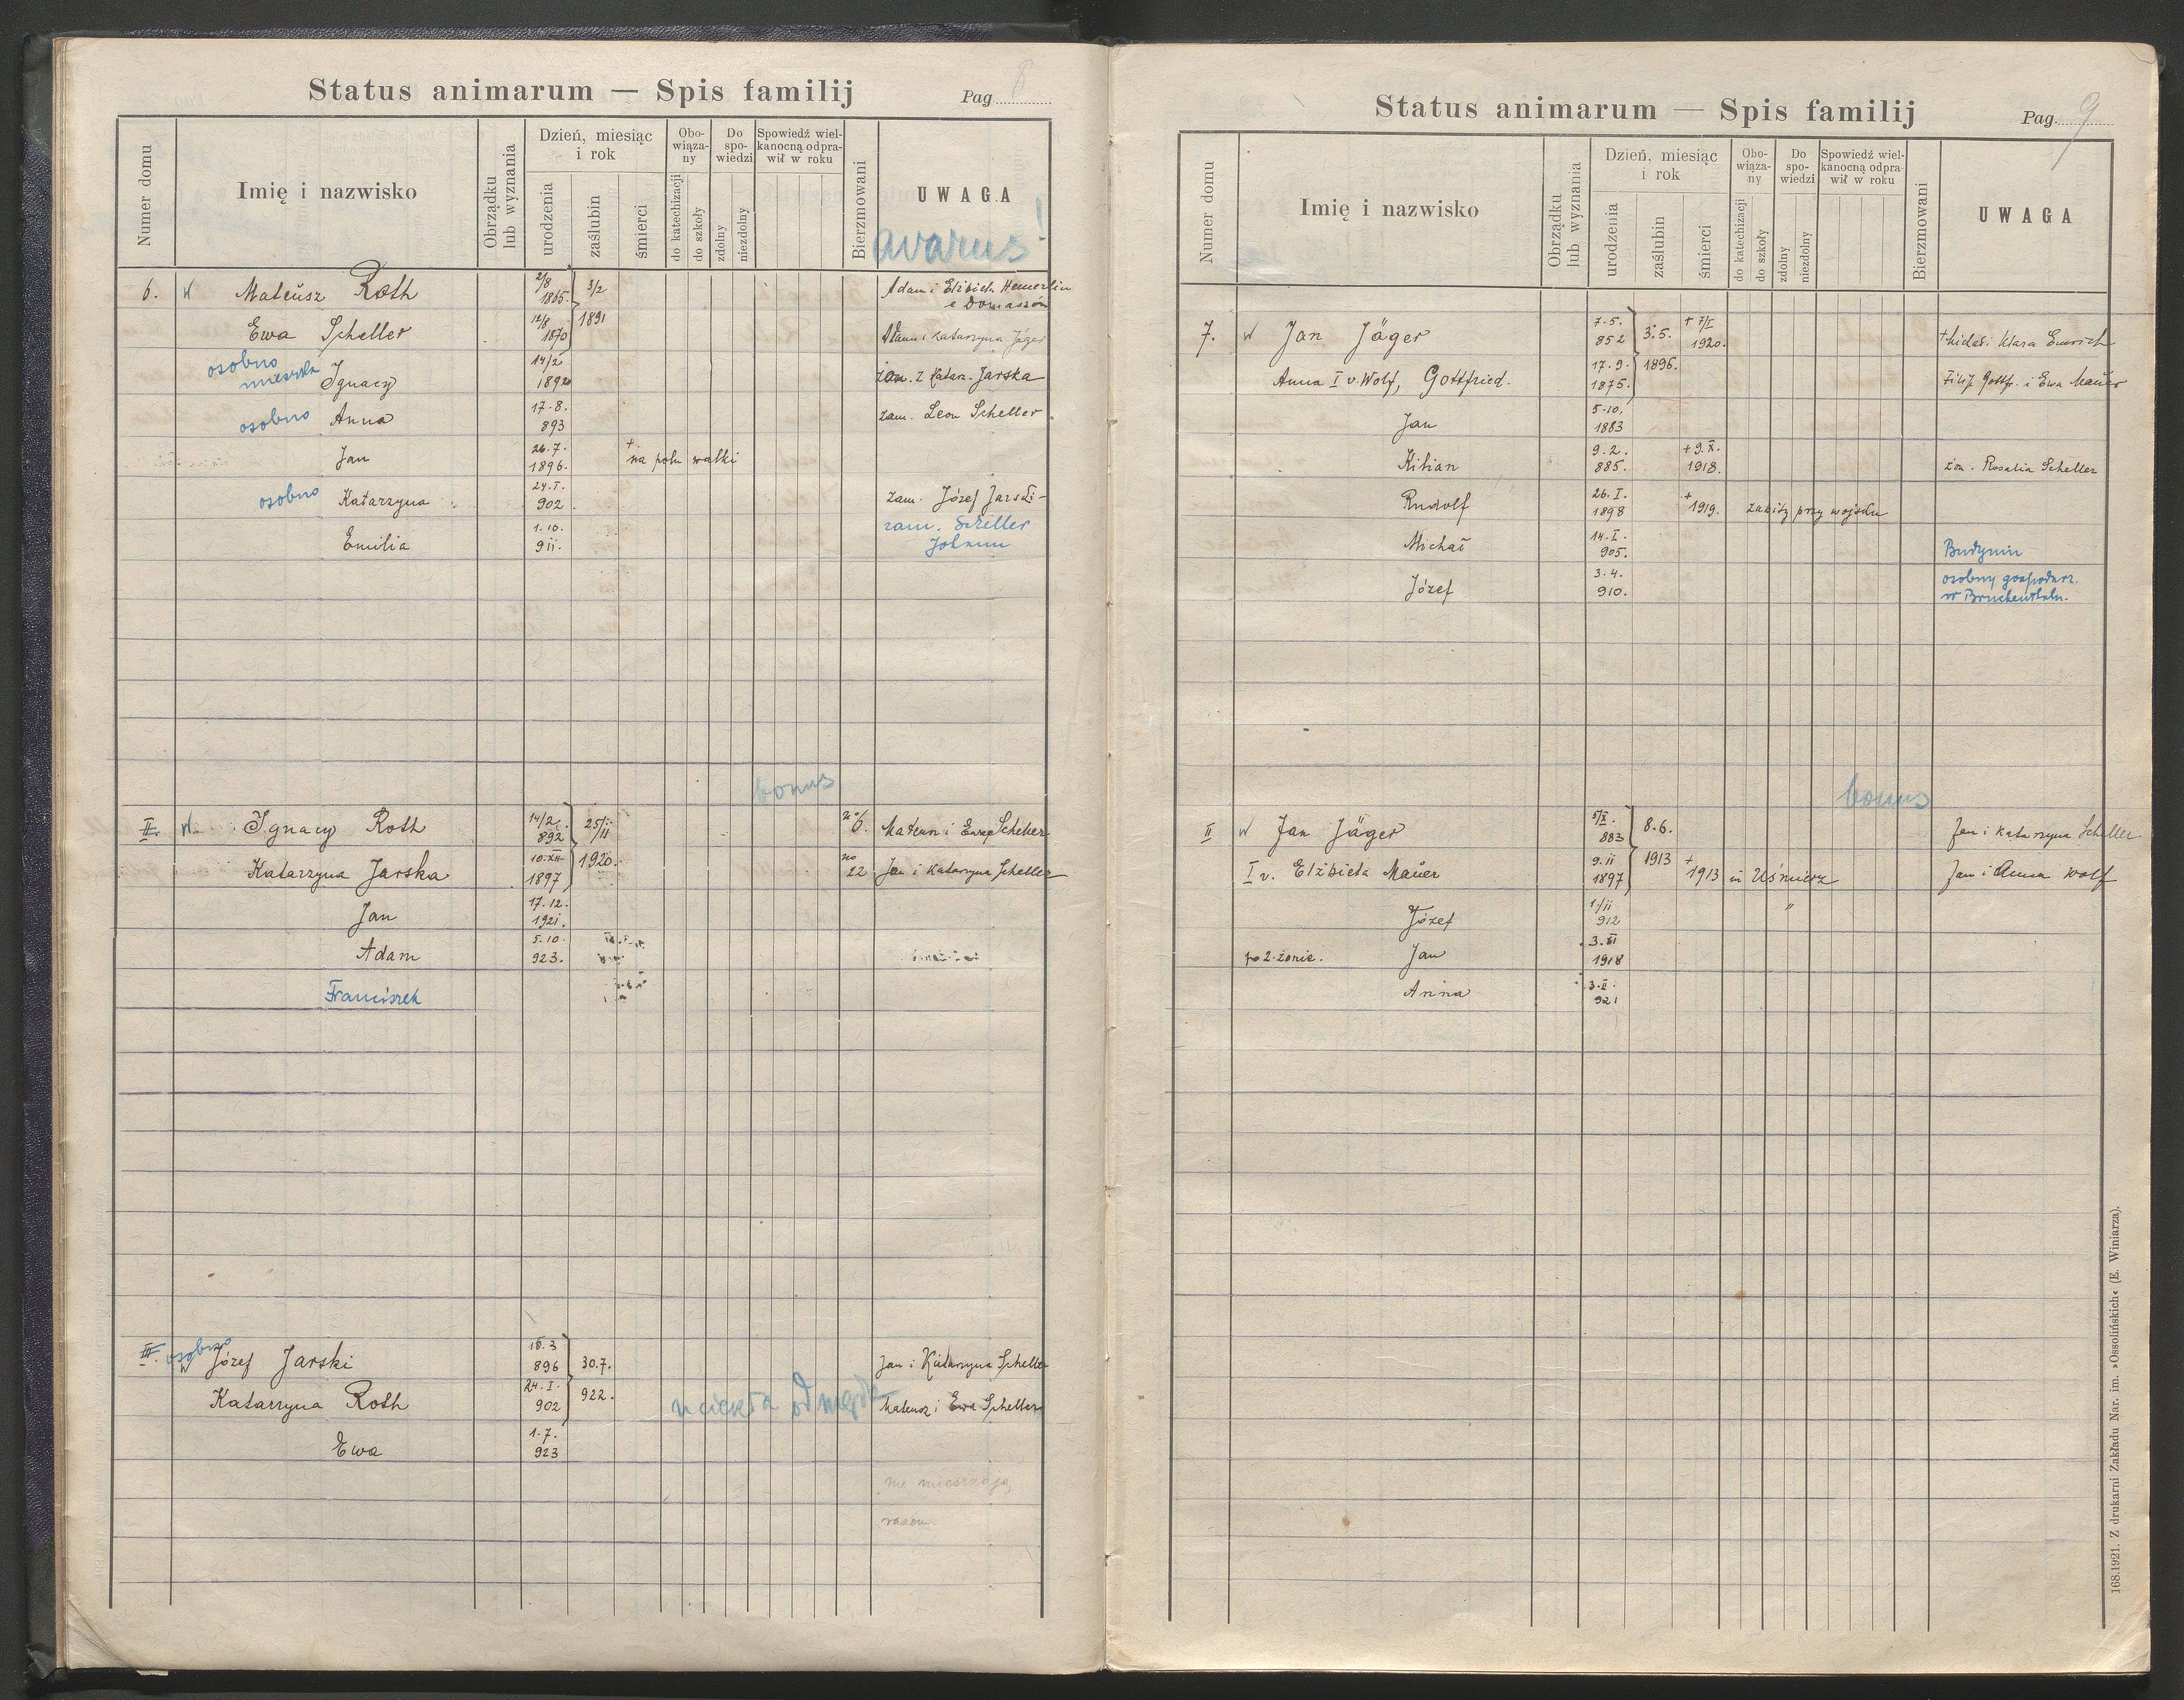 Status animarum — Spis familij
Pag. 8
Numer domu
Imię i nazwisko
Obrządku lub wyznania
Dzień, miesiąc i rok
urodzenia
zaślubin
śmierci
Obowiązany
do katechizacji
do szkoły
Do spowiedzi
zdolny
niezdolny
Spowiedź wielkanocną odprawił w roku
Bierzmowani
UWAGA
avarus!
6. w Mateusz Roth 2/8 1865. 3/2 Adam i Elżbieta Hemerlin
z Domaszów
Ewa Scheller 12/8 1870 1891 Adam i Katarzyna Jäger
osobno mieszka Ignacy 14/2 1892 żon. z Katarz. Jarska
osobno Anna 17.8. 893 zam. Leon Scheller
Jan 26.7. 1896. + na polu walki
osobno Katarzyna 24.I. 902. zam. Józef Jarski
Emilia 1.10. 911. zam. Scheller
Johann
bonus
II. w. Ignacy Roth 14/2. 892 25/II No 6. Mateusz i Ewa Scheller
Katarzyna Jarska 10.XII 1897 1920. No 22 Jan i Katarzyna Scheller
Jan 17.12. 1921.
Adam 5.10. 923.
Franciszek
III. osobno w Józef Jarski 18.3 896 30.7. Jan i Katarzyna Scheller
Katarzyna Roth 24.I. 902 922. uciekła od męża Mateusz i Ewa Scheller
Ewa 1.7. 923
nie mieszkają
razem.
Status animarum — Spis familij
Pag. 9
Numer domu
Imię i nazwisko
Obrządku lub wyznania
Dzień, miesiąc i rok
urodzenia
zaślubin
śmierci
Obowiązany
do katechizacji
do szkoły
Do spowiedzi
zdolny
niezdolny
Spowiedź wielkanocną odprawił w roku
Bierzmowani
UWAGA
7. w Jan Jäger 7.5. 852 3.5. + 7/I 1920. Klara Emrich
Anna I v. Wolf, Gottfried. 17.9. 1875. 1896. Filip Gottfr. i Ewa Mauer
Jan 5.10. 1883
Kilian 9.2. 885. + 9.X. 1918. żon. Rosalia Scheller
Rudolf 26.I. 1898 + 1919. zabity przy wojsku
Michał 14.I. 905. Budynin
Józef 3.4. 910. osobny gospodarz.
w Bruckenthalu.
bonus
II w Jan Jäger 5/X. 883 8.6. Jan i Katarzyna Scheller
I v. Elżbieta Mauer 9.11 1897 1913 + 1913 in Uśmierz Jan i Anna Wolf
Józef 1./11 912 "
po 2. żonie. Jan 3.XI 1918
Anna 3.II. 921
168.1921. Z drukarni Zakładu Nar. im. »Ossolińskich« (E. Winiarza).